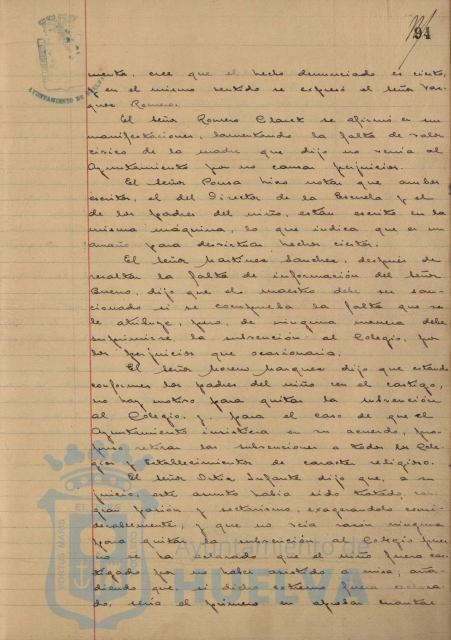 94
AYUNTAMIENTO DE HUELVA
mente, cree que el hecho denunciado es cierto,
y en el mismo sentido se expresó el Señor Vaz-
quez Romero.
El Señor Romero Claret se afirmó en sus
manifestaciones, lamentando la falta de valor
cívico de la madre que dijo no venia al
Ayuntamiento por no causar perjuicios.
El Señor Ponsa hizo notar que ambos
escritos, el del Director de la Escuela y el
de los padres del niño, están escritos en la
misma máquina, lo que indica que es un
amaño para desvirtuar hechos ciertos.
El Señor Martinez Sanchez, después de
resaltar la falta de información del Señor
Bueno, dijo que el maestro debe ser san-
cionado si se comprueba la falta que se
le atribuye, pero, de ninguna manera debe
suprimirse la subvención al Colegio, por
los perjuicios que ocasionaria.
El Señor Moreno Marquez dijo que estando
conformes los padres del niño con el castigo,
no hay motivo para quitar la subvención
al Colegio, y, para el caso de que el
Ayuntamiento insistiera en su acuerdo, pro-
puso retirar las subvenciones a todos los Cole-
gios y Establecimientos de caracter religioso.
El Señor Infante dijo que, a su
juicio, este asunto habia sido tratado, con
gran pasión y sectarismo, exagerandolo consi-
derablemente, y que no veia razón ninguna
para quitar la subvención al Colegio pues
no se ha aclarado si el niño fuera cas-
tigado por no haber asistido a misa, aña-
diendo que, si dicho extremo fuera aclara-
do, seria el primero en aprobar cuantas
Ayuntamiento de
HUELVA
PORTUS MARIS